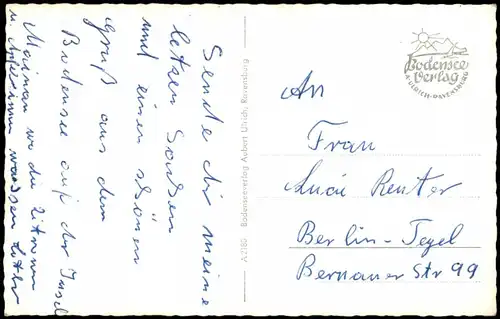 Sende dir meine
letzen Socken
und einen schönen
Gruß aus dem
Bodensee auf der Insel
Mainau wo die Zitronen
u. Apfelsinen wachsen
A 7180 Bodenseeverlag Aubert Ulrich, Ravensburg
Bodensee
Verlag
A. ULRICH - RAVENSBURG
An
Frau
Luci Reuter
Berlin-Tegel
Bernauer Str 99